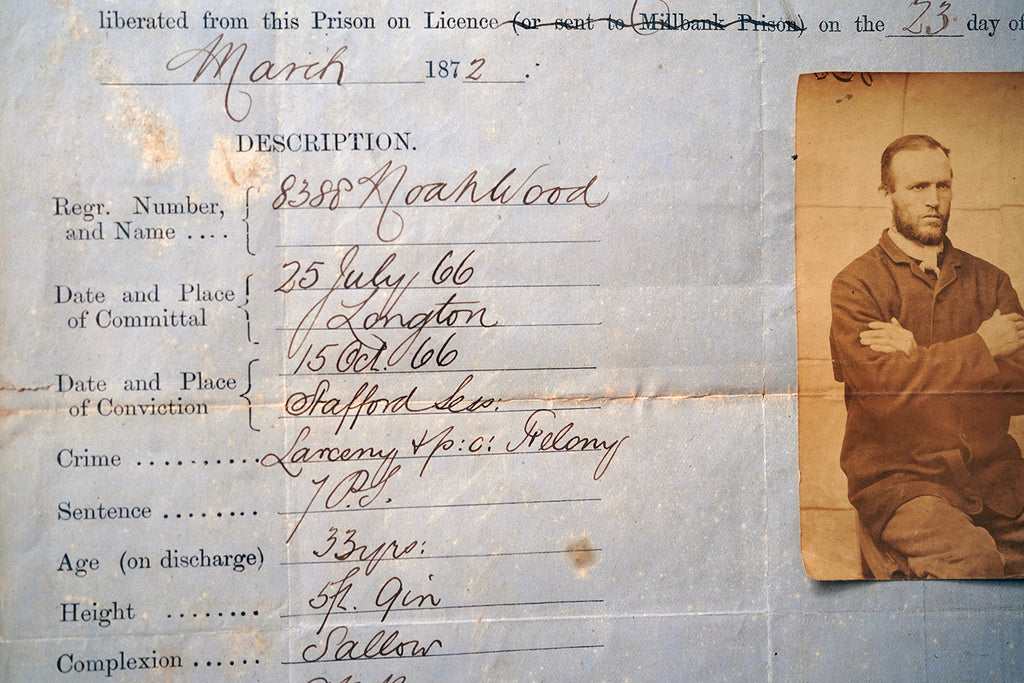 liberated from this Prison on Licence (or sent to Millbank Prison) on the 23 day of
March 1872.
DESCRIPTION.
Regr. Number, and Name .... 8388 Noah Wood
Date and Place of Committal 25 July 66
Longton
Date and Place of Conviction 15 Oct. 66
Stafford Sess:
Crime .......... Larceny & p: c: Felony
Sentence ........ 7 P.S.
Age (on discharge) 33 yrs:
Height ........ 5ft. 9in
Complexion ...... Sallow